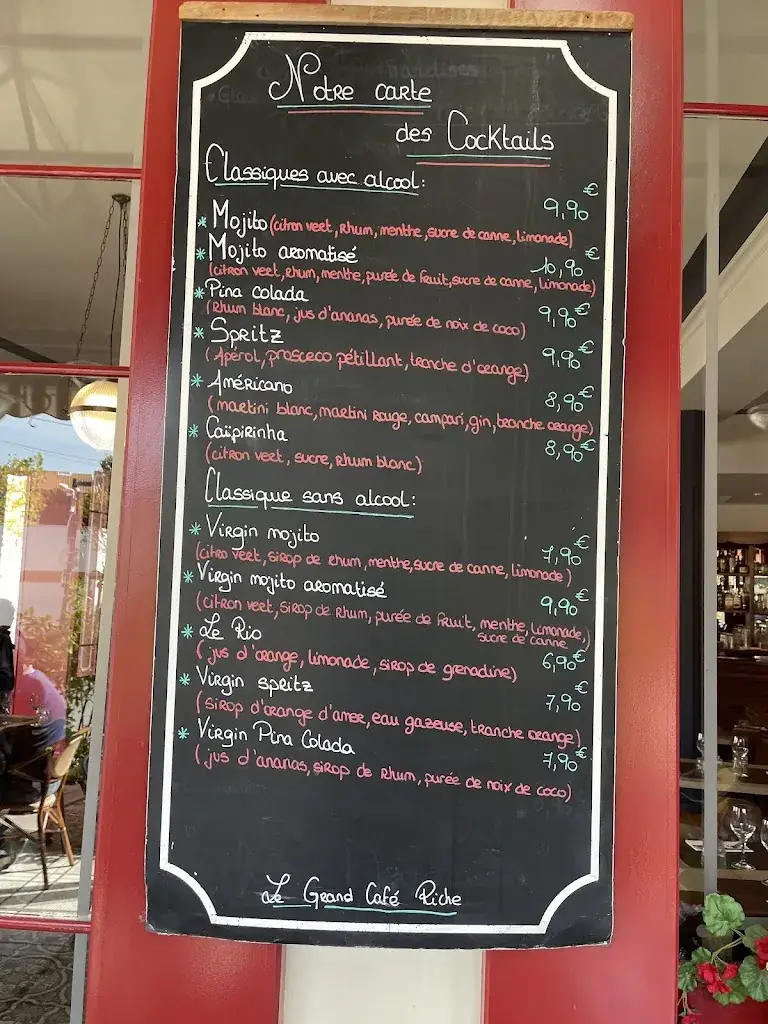 Notre carte
des Cocktails
Classiques avec alcool:
* Mojito (citron vert, Rhum, menthe, sucre de canne, limonade) 9,90€
* Mojito aromatisé 10,90€
(citron vert, Rhum, menthe, purée de fruit, sucre de canne, limonade)
* Pina colada 9,90€
(Rhum blanc, jus d'ananas, purée de noix de coco)
* Spritz 9,90€
(Apérol, prosceco pétillant, tranche d'orange)
* Américano 8,90€
(martini blanc, martini Rouge, campari, gin, tranche orange)
* Caïpirinha 8,90€
(citron vert, sucre, Rhum blanc)
Classique sans alcool:
* Virgin mojito 7,90€
(citro vert, sirop de rhum, menthe, sucre de canne, limonade)
* Virgin mojito aromatisé 9,90€
(citron vert, sirop de Rhum, purée de fruit, menthe, limonade,
sucre de canne)
* Le Rio 6,90€
(jus d'orange, limonade, sirop de grenadine)
* Virgin spritz 7,90€
(sirop d'orange d'amer, eau gazeuse, tranche orange)
* Virgin Pina Colada 7,90€
(jus d'ananas, sirop de Rhum, purée de noix de coco)
Le Grand Café Riche